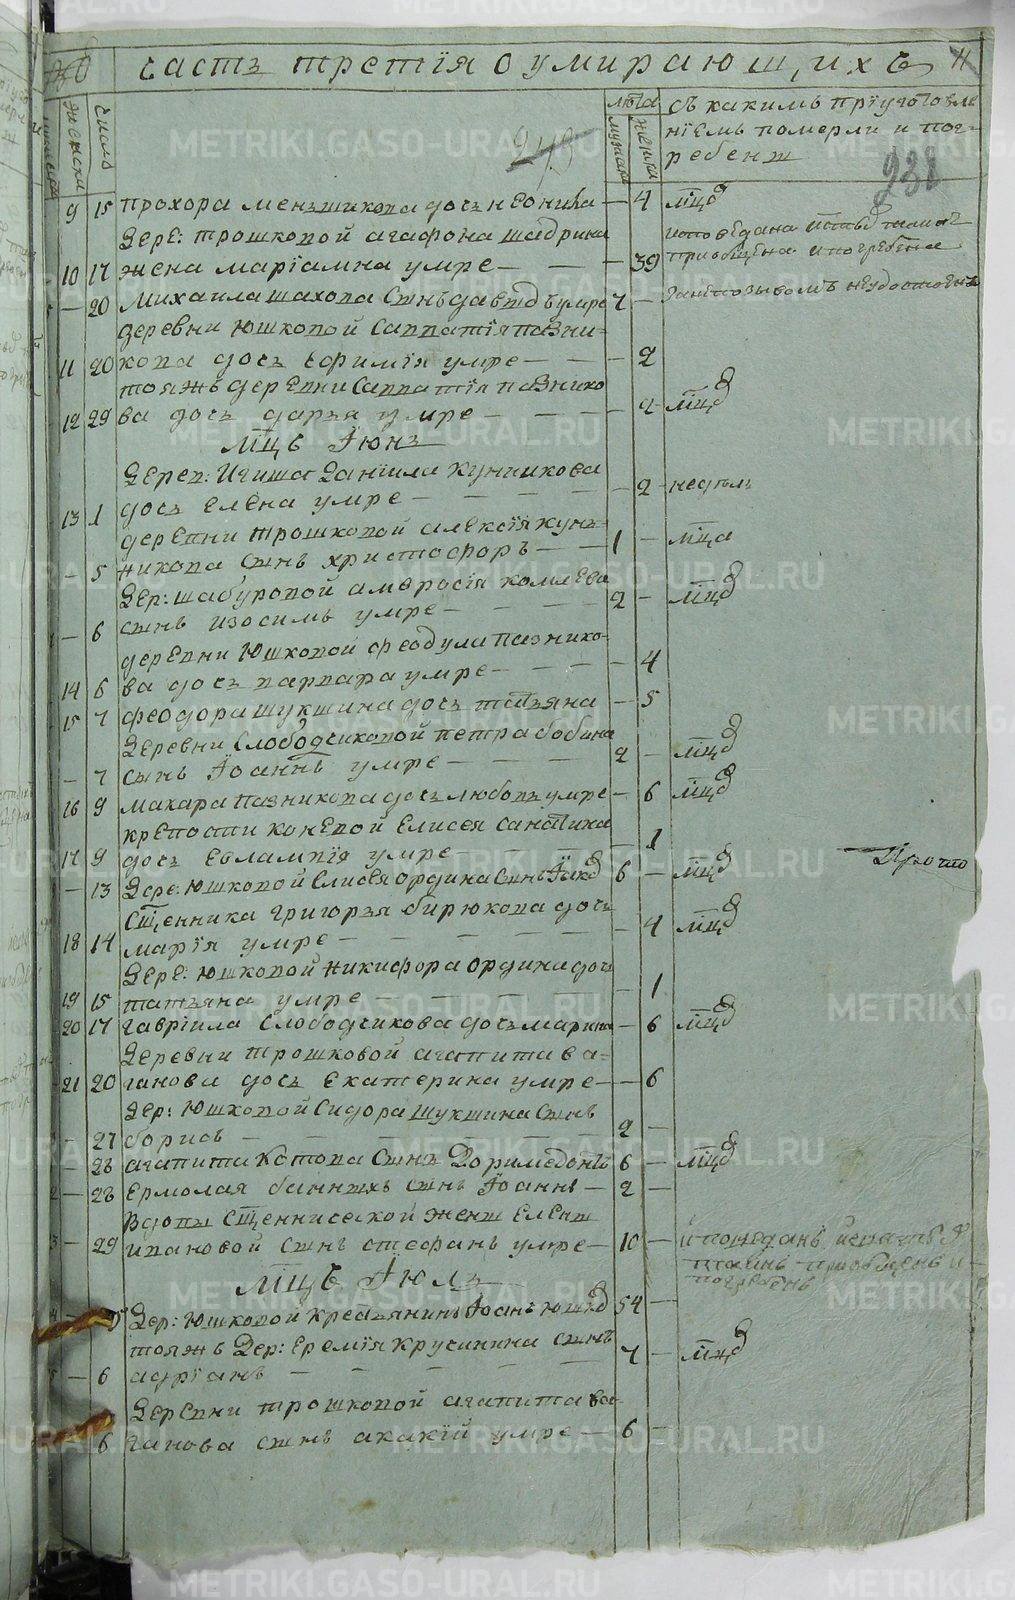 часть третїя о умирающихъ 11
женска
число
лѣта
мужска
женска
съ какимъ прїуготовле
нїемъ померли и пог-
ребены
238
9 15 прохора меньшикова дочь неонила — 4 мцд
Дере: трошковой агафона шадрина
10 17 жена марїамна умре — — — — 39
исповедана и святыхъ таинъ
приобщена и погребена
— 20 Михаила шахова сынъ давыдъ умре 7 —
деревни Юшковой савватїя пазни-
11 20 кова дочь ефимїя умре — — — 2
тояжъ деревни Савватїя пазнико
12 29 ва дочь дарья умре — — — 2 мцд
Мцъ Їюнь
Дерев: Игиша Данїила Кунчикова
13 1 дочь елена умре — — — — 2 недѣль
деревни трошковой алексїя кун-
— 5 чикова сынъ христофоръ — — 1 — мца
Дер: шабуровой амвросїя комлева
— 6 сынъ изосимъ умре — — — 2 — мцд
деревни Юшковой феодула пазнико-
14 6 ва дочь варвара умре — — — — 4
15 7 феодора шукшина дочь татьяна — 5
Деревни слободчиковой петра бобина
— 7 сынъ Їоаннъ умре — — — 2 — мцд
16 9 макара пазникова дочь любовь умре — 6 мцд
крепости коневой Елисея
17 9 дочь евлампїя умре — — — 1
— 13 Дере: Юшковой Елисея ордина сынъ 6 — мцд
Сщенника григорья бирюкова дочь
18 14 марїя умре — — — — — 4 мцд
Дере: Юшковой никифора ордина дочь
19 15 татьяна умре — — — — 1
20 17 гаврїила слободчикова дочь марина — 6 мцд
Деревни трошковой агапита ва-
21 20 ганова дочь екатерина умре — — 6
Дер: Юшковой Сидора шукшина сынъ
— 27 борисъ — — — — — 2 —
— 28 агапита котова сынъ Доримедонтъ 6 — мцд
— 28 ермолая банныхъ сынъ Їоаннъ — 2 —
Вдовы сщеннической жены елены
— 29 ивановой сынъ стефанъ умре — 10 —
исповеданъ и святыхъ
таинъ приобщенъ и
погребенъ
Мцъ Їюль
5 Дер: Юшковой крестьянинъ Їоанъ 54 —
тояжъ Дер: Еремїя Крусинина сынъ
— 6 адрїанъ — — — — 7 — мцд
Деревни трошковой агапита ва-
6 ганова сынъ акакїй умре — 6 —
METRIKI.GASO-URAL.RU